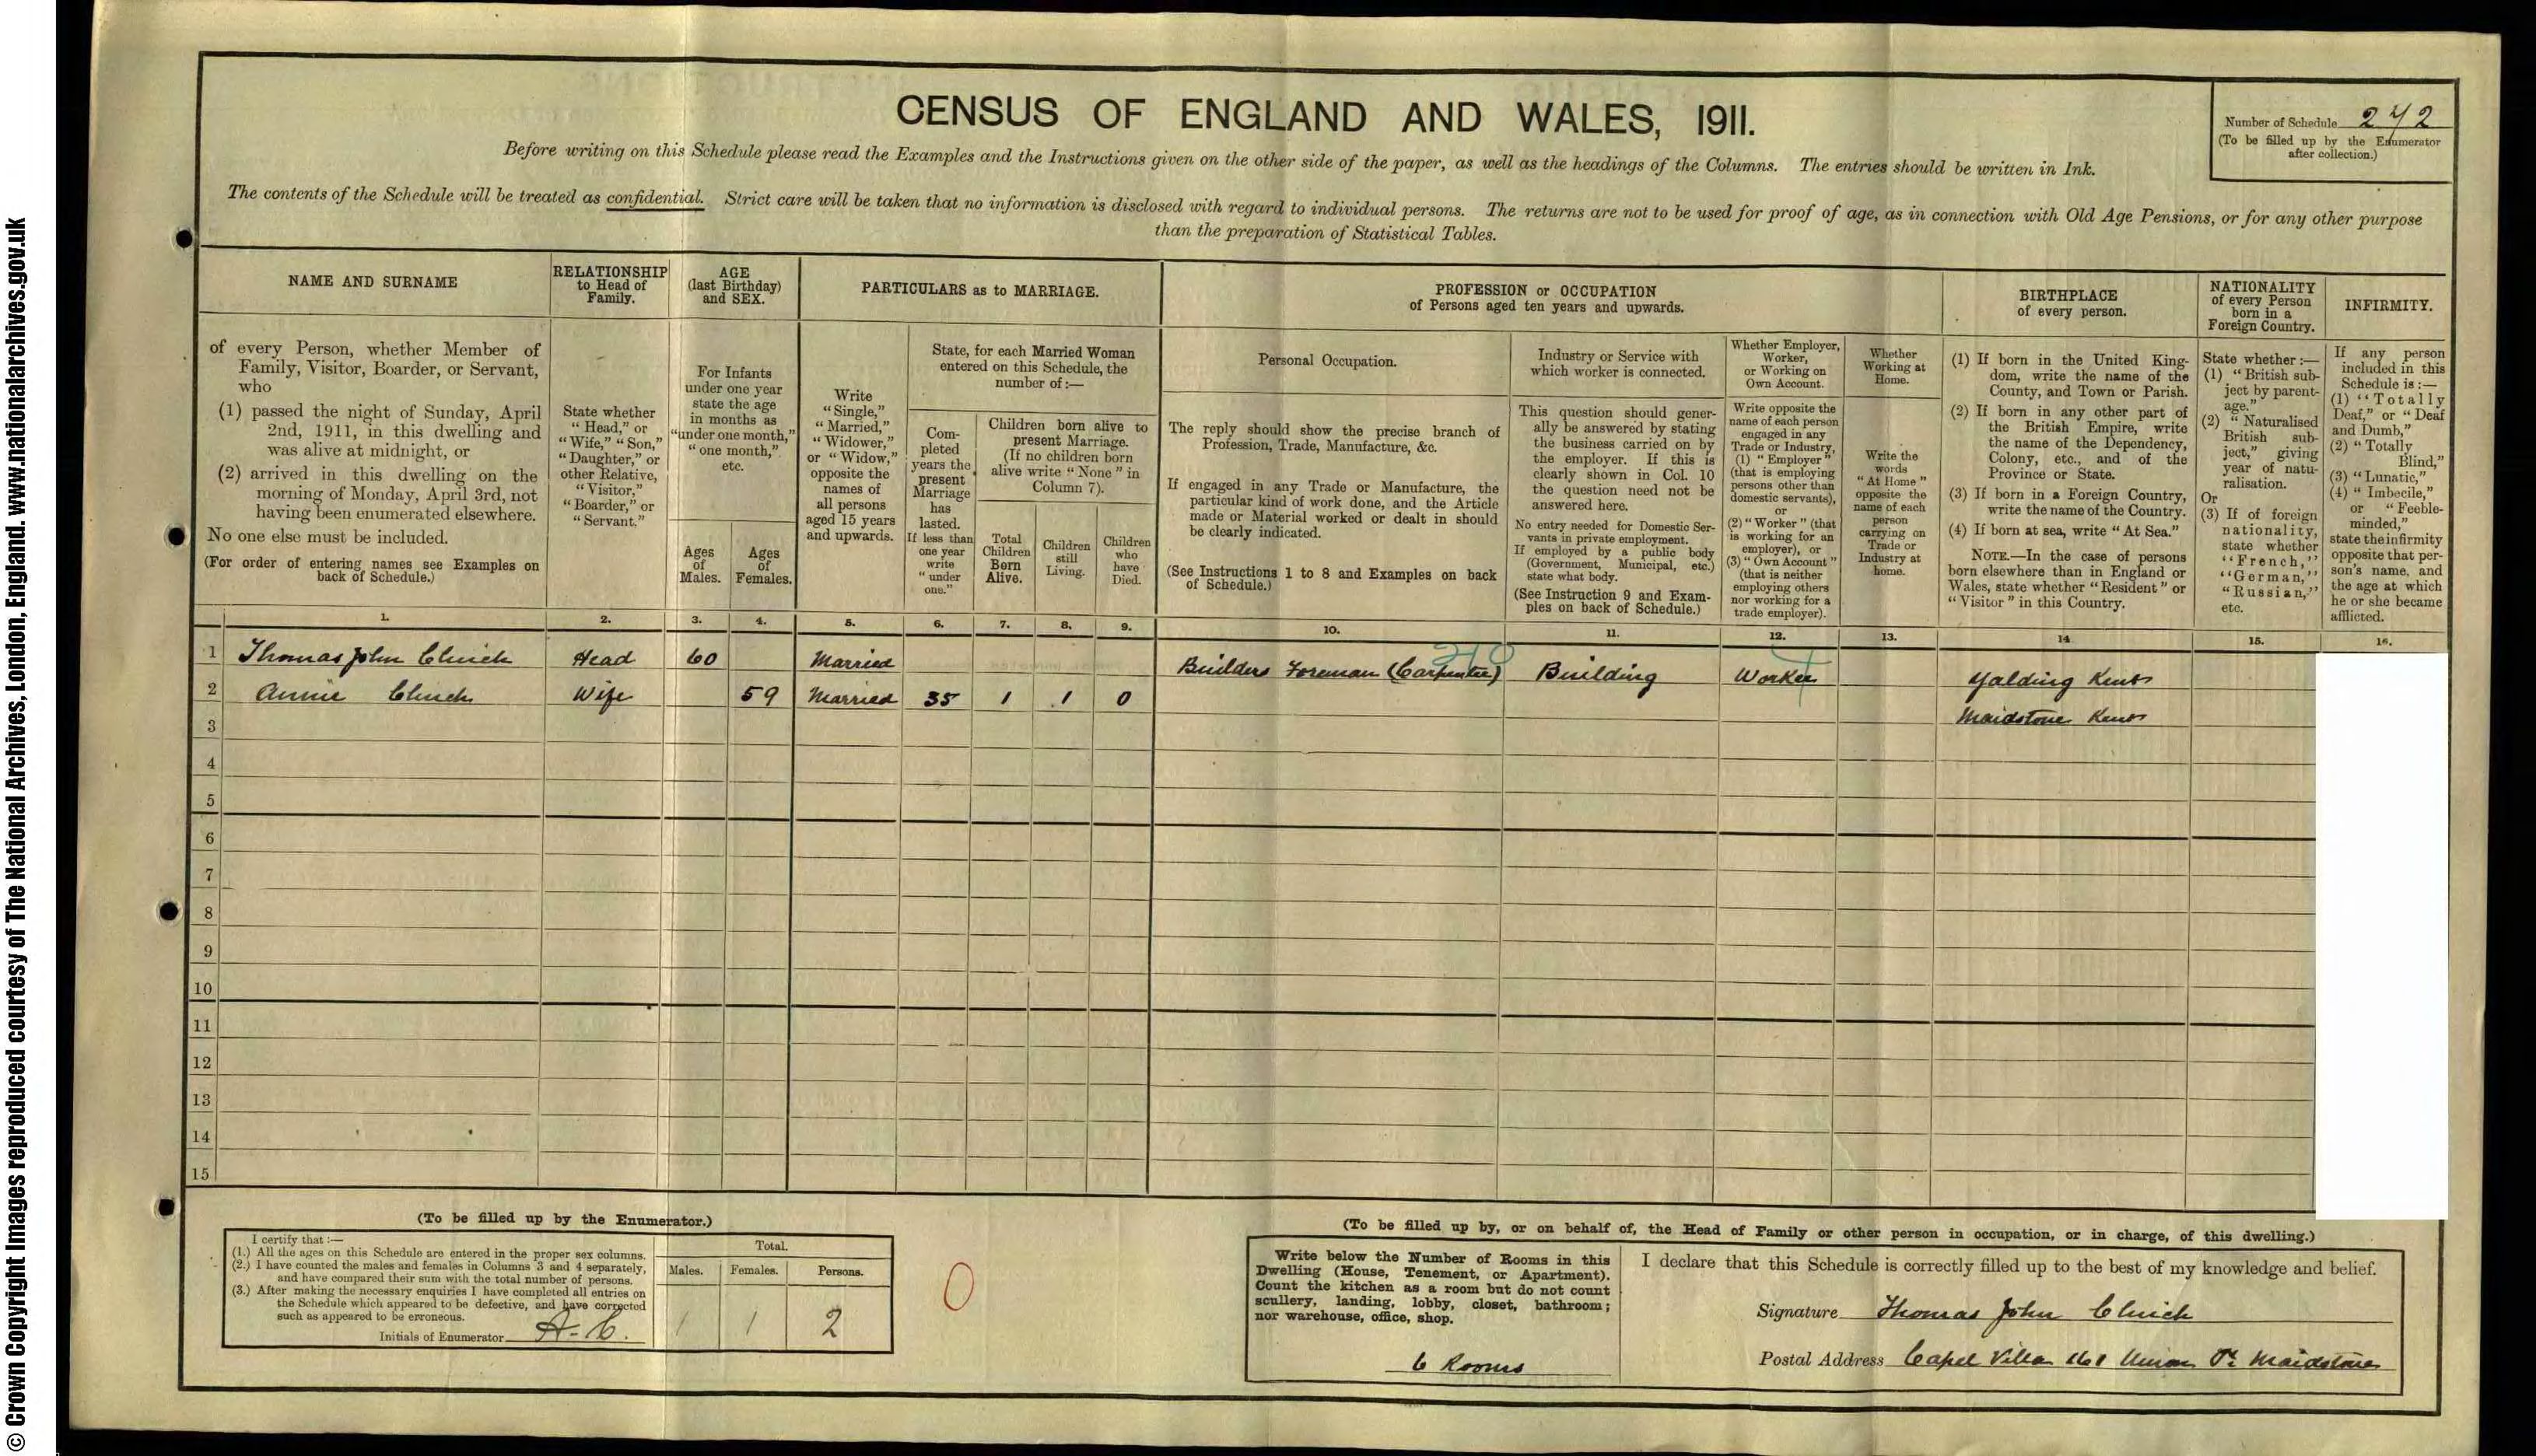 © Crown Copyright Images reproduced courtesy of The National Archives, London, England. www.nationalarchives.gov.uk
CENSUS OF ENGLAND AND WALES, 1911.
Number of Schedule 242
(To be filled up by the Enumerator
after collection.)
Before writing on this Schedule please read the Examples and the Instructions given on the other side of the paper, as well as the headings of the Columns. The entries should be written in Ink.
The contents of the Schedule will be treated as confidential. Strict care will be taken that no information is disclosed with regard to individual persons. The returns are not to be used for proof of age, as in connection with Old Age Pensions, or for any other purpose
than the preparation of Statistical Tables.
NAME AND SURNAME
of every Person, whether Member of
Family, Visitor, Boarder, or Servant,
who
(1) passed the night of Sunday, April
2nd, 1911, in this dwelling and
was alive at midnight, or
(2) arrived in this dwelling on the
morning of Monday, April 3rd, not
having been enumerated elsewhere.
No one else must be included.
(For order of entering names see Examples on
back of Schedule.)
RELATIONSHIP
to Head of
Family.
State whether
"Head," or
"Wife," "Son,"
"Daughter," or
other Relative,
"Visitor,"
"Boarder," or
"Servant."
AGE
(last Birthday)
and SEX.
For Infants
under one year
state the age
in months as
"under one month,"
"one month,"
etc.
Ages
of
Males.
Ages
of
Females.
PARTICULARS as to MARRIAGE.
Write
"Single,"
"Married,"
"Widower,"
or "Widow,"
opposite the
names of
all persons
aged 15 years
and upwards.
State, for each Married Woman
entered on this Schedule, the
number of:—
Com-
pleted
years the
present
Marriage
has
lasted.
If less than
one year
write
"under
one."
Children born alive to
present Marriage.
(If no children born
alive write "None" in
Column 7).
Total
Children
Born
Alive.
Children
still
Living.
Children
who
have
Died.
PROFESSION or OCCUPATION
of Persons aged ten years and upwards.
Personal Occupation.
The reply should show the precise branch of
Profession, Trade, Manufacture, &c.
If engaged in any Trade or Manufacture, the
particular kind of work done, and the Article
made or Material worked or dealt in should
be clearly indicated.
(See Instructions 1 to 8 and Examples on back
of Schedule.)
Industry or Service with
which worker is connected.
This question should gener-
ally be answered by stating
the business carried on by
the employer. If this is
clearly shown in Col. 10
the question need not be
answered here.
No entry needed for Domestic Ser-
vants in private employment.
If employed by a public body
(Government, Municipal, etc.)
state what body.
(See Instruction 9 and Exam-
ples on back of Schedule.)
Whether Employer,
Worker,
or Working on
Own Account.
Write opposite the
name of each person
engaged in any
Trade or Industry,
(1) "Employer"
(that is employing
persons other than
domestic servants),
or
(2) "Worker" (that
is working for an
employer), or
(3) "Own Account"
(that is neither
employing others
nor working for a
trade employer).
Whether
Working at
Home.
Write the
words
"At Home"
opposite the
name of each
person
carrying on
Trade or
Industry at
home.
BIRTHPLACE
of every person.
(1) If born in the United King-
dom, write the name of the
County, and Town or Parish.
(2) If born in any other part of
the British Empire, write
the name of the Dependency,
Colony, etc., and of the
Province or State.
(3) If born in a Foreign Country,
write the name of the Country.
(4) If born at sea, write "At Sea."
NOTE.—In the case of persons
born elsewhere than in England or
Wales, state whether "Resident" or
"Visitor" in this Country.
NATIONALITY
of every Person
born in a
Foreign Country.
State whether:—
(1) "British sub-
ject by parent-
age."
(2) "Naturalised
British sub-
ject," giving
year of natu-
ralisation.
Or
(3) If of foreign
nationality,
state whether
"French,"
"German,"
"Russian,"
etc.
INFIRMITY.
If any person
included in this
Schedule is:—
(1) "Totally
Deaf," or "Deaf
and Dumb,"
(2) "Totally
Blind,"
(3) "Lunatic,"
(4) "Imbecile,"
or "Feeble-
minded,"
state the infirmity
opposite that per-
son's name, and
the age at which
he or she became
afflicted.
1. 2. 3. 4. 5. 6. 7. 8. 9. 10. 11. 12. 13. 14 15. 16.
1 Thomas John Clinch Head 60 Married Builders Foreman (Carpenter) Building Worker Yalding Kent
2 Annie Clinch Wife 59 Married 35 1 1 0 Maidstone Kent
3
4
5
6
7
8
9
10
11
12
13
14
15
(To be filled up by the Enumerator.)
I certify that:—
(1.) All the ages on this Schedule are entered in the proper sex columns.
(2.) I have counted the males and females in Columns 3 and 4 separately,
and have compared their sum with the total number of persons.
(3.) After making the necessary enquiries I have completed all entries on
the Schedule which appeared to be defective, and have corrected
such as appeared to be erroneous.
Initials of Enumerator A-C.
Total.
Males. Females. Persons.
1 1 2
0
(To be filled up by, or on behalf of, the Head of Family or other person in occupation, or in charge, of this dwelling.)
Write below the Number of Rooms in this
Dwelling (House, Tenement, or Apartment).
Count the kitchen as a room but do not count
scullery, landing, lobby, closet, bathroom;
nor warehouse, office, shop.
6 Rooms
I declare that this Schedule is correctly filled up to the best of my knowledge and belief.
Signature Thomas John Clinch
Postal Address Capel Villa 161 Union St Maidstone